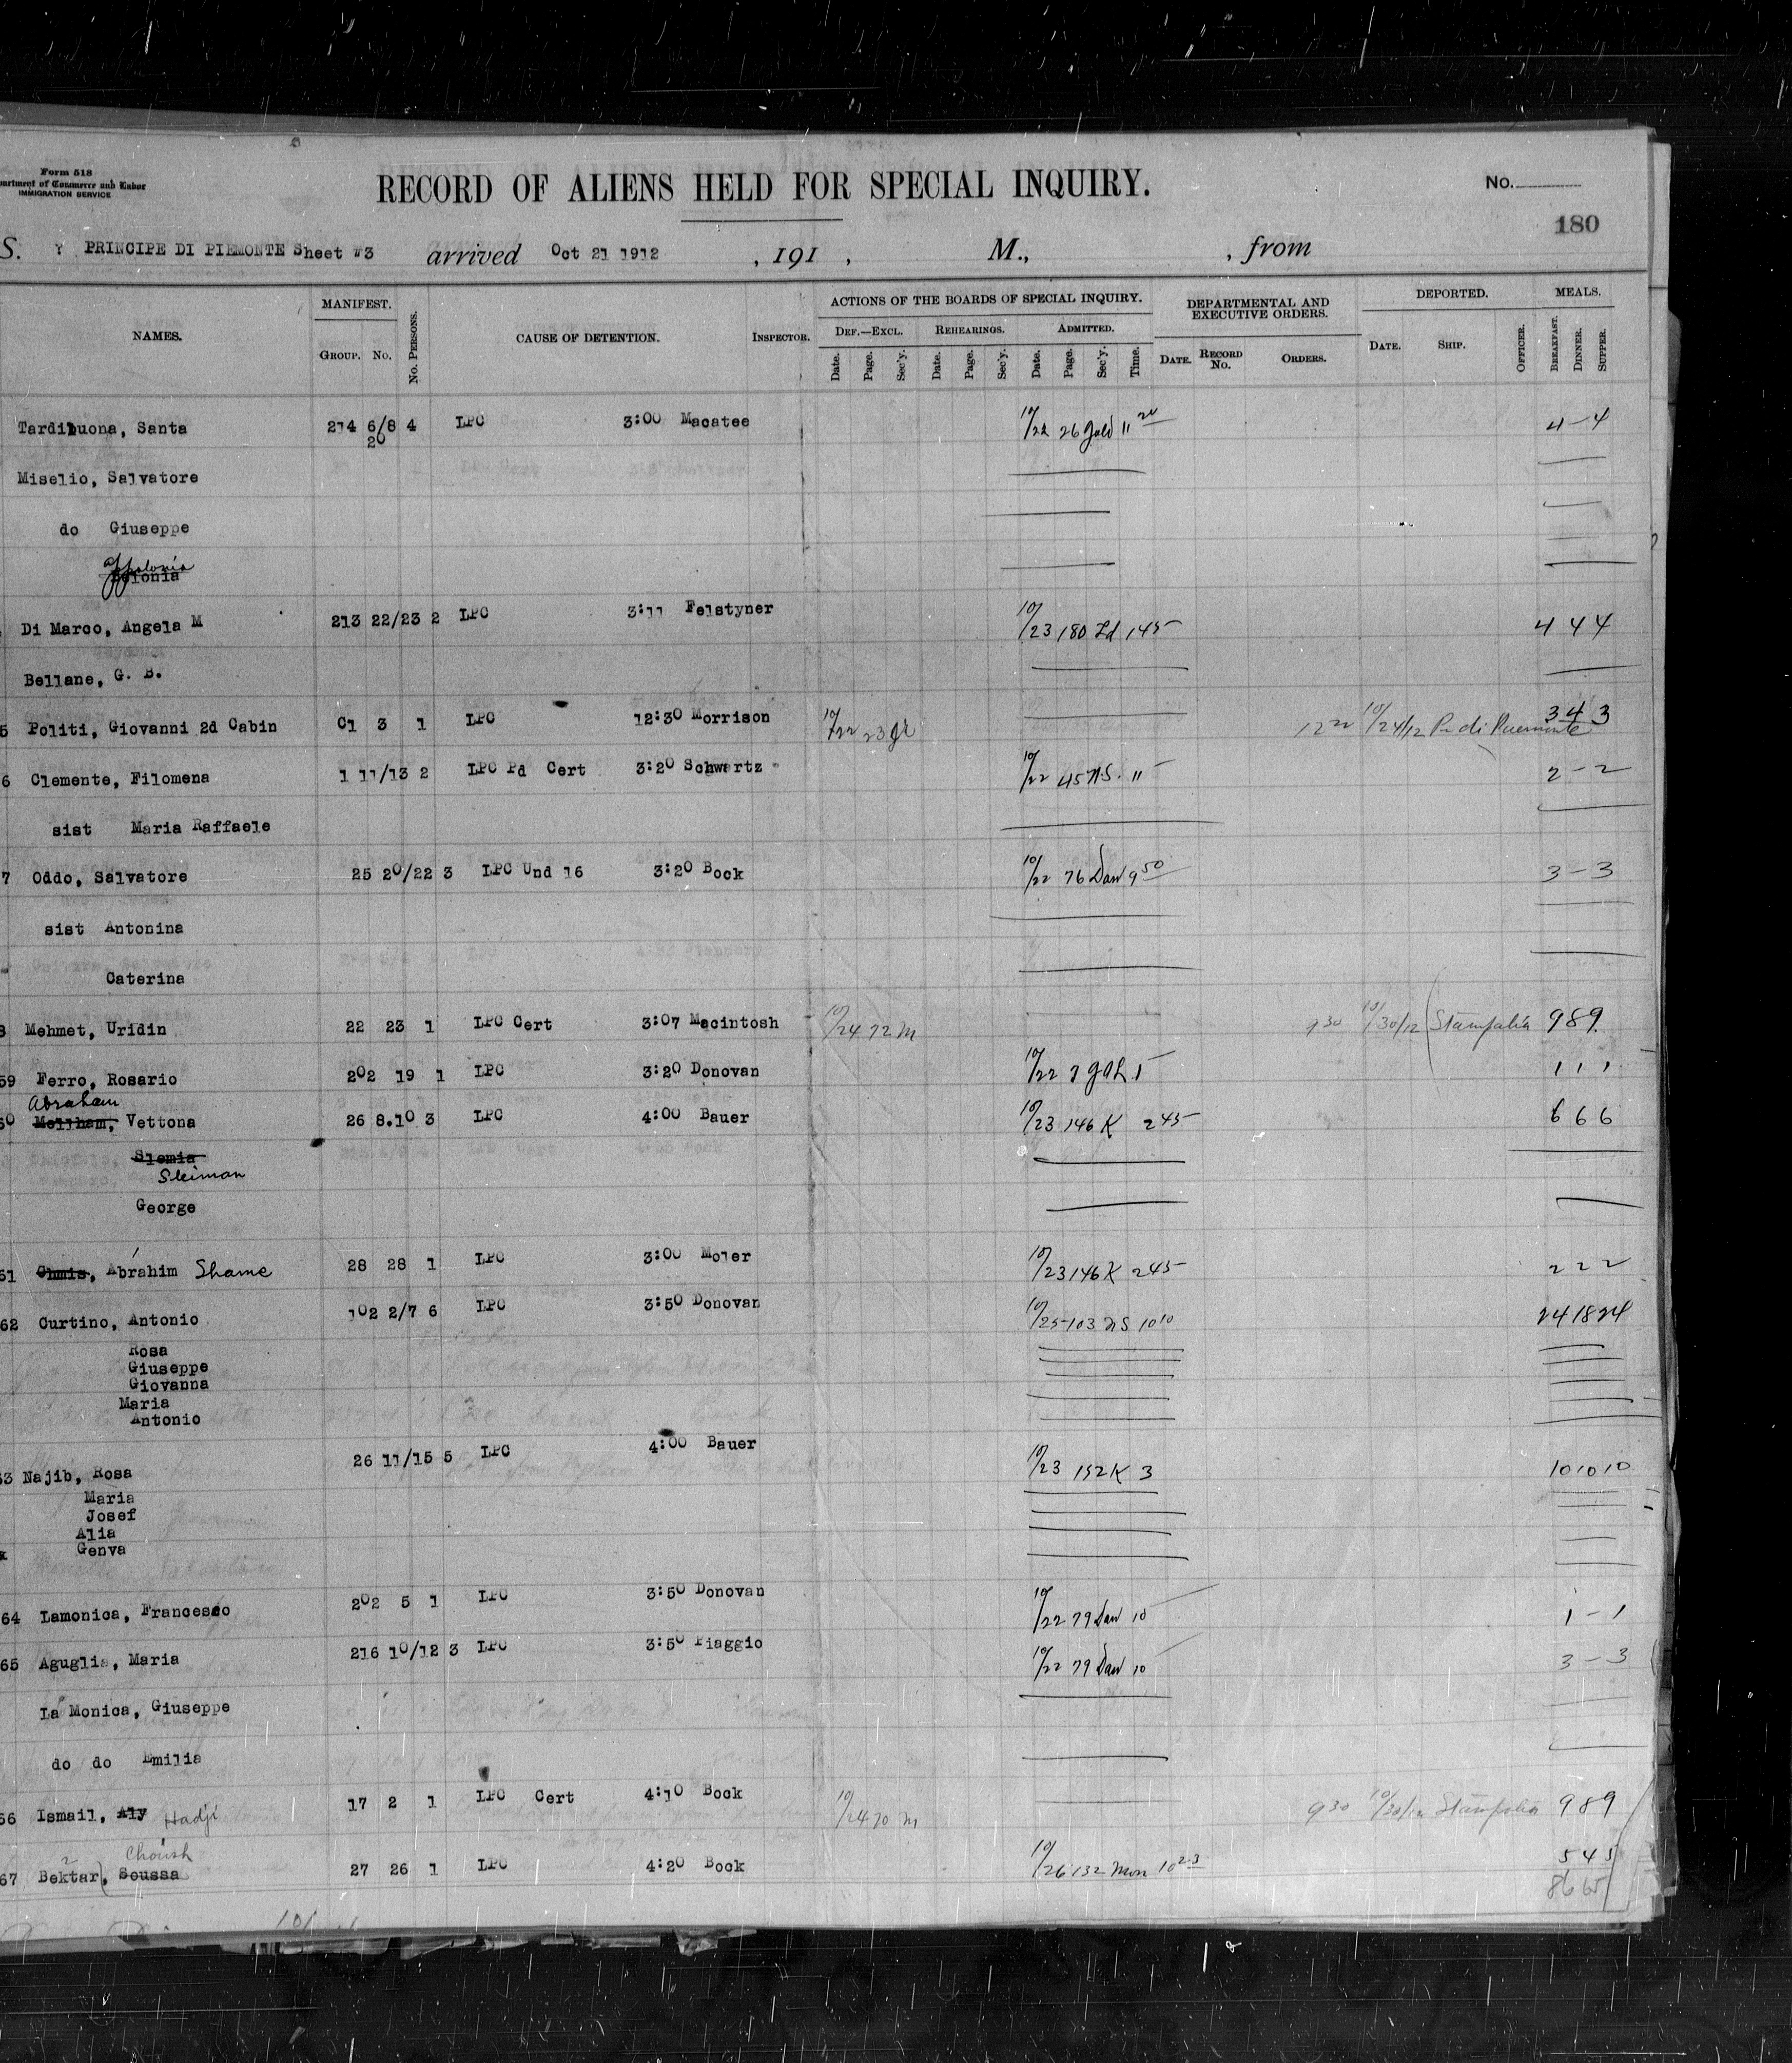 Form 518
Department of Commerce and Labor
IMMIGRATION SERVICE
RECORD OF ALIENS HELD FOR SPECIAL INQUIRY.
No.
180
S. PRINCIPE DI PIEMONTE Sheet #3 arrived Oct 21 1912 , 191 , M., , from
NAMES. MANIFEST. No. PERSONS. CAUSE OF DETENTION. INSPECTOR. ACTIONS OF THE BOARDS OF SPECIAL INQUIRY. DEPARTMENTAL AND EXECUTIVE ORDERS. DEPORTED. MEALS.
GROUP. No. DEF.—EXCL. REHEARINGS. ADMITTED.
Date. Page. Sec'y. Date. Page. Sec'y. Date. Page. Sec'y. Time. DATE. RECORD No. ORDERS. DATE. SHIP. OFFICER. BREAKFAST. DINNER. SUPPER.
Tardibuona, Santa 214 6/8 4 LPC 3:00 Macatee 10/22 26 Gold 11 20 4 - 4
20
Miselio, Salvatore
do Giuseppe
Appolonia
Di Marco, Angela M 213 22/23 2 LPC 3:11 Felstyner 10/23 180 Ld 145 4 4 4
Bellane, G. B.
5 Politi, Giovanni 2d Cabin C1 3 1 LPC 12:30 Morrison 10/22 23 10/24/12 Pr di Piemonte 3 4 3
6 Clemente, Filomena 1 11/13 2 LPC Pd Cert 3:20 Schwartz 10/22 45 NS. 11 2 - 2
sist Maria Raffaele
7 Oddo, Salvatore 25 20/22 3 LPC Und 16 3:20 Bock 10/22 76 Daw 9 50 3 - 3
sist Antonina
Caterina
8 Mehmet, Uridin 22 23 1 LPC Cert 3:07 Macintosh 10/24 72 M 9 30 10/30/12 Stampalia 9 8 9
59 Ferro, Rosario 202 19 1 LPC 3:20 Donovan 10/22 7 1 1 1 1
Abraham
60 Vettona 26 8.10 3 LPC 4:00 Bauer 10/23 146 K 2 45 6 6 6
Slemia
Sleiman
George
61 Chmis, Abrahim Shame 28 28 1 LPC 3:00 Moler 10/23 146 K 2 45 2 2 2
62 Curtino, Antonio 102 2/7 6 LPC 3:50 Donovan 10/25 103 NS 10 10 24 18 24
Rosa
Giuseppe
Giovanna
Maria
Antonio
63 Najib, Rosa 26 11/15 5 LPC 4:00 Bauer 10/23 152 K 3 10 10 10
Maria
Josef
Alia
Genva
64 Lamonica, Francesco 202 5 1 LPC 3:50 Donovan 10/22 79 Daw 10 1 - 1
65 Aguglia, Maria 216 10/12 3 LPC 3:50 Piaggio 10/22 79 Daw 10 3 - 3
La Monica, Giuseppe
do do Emilia
66 Ismail, Aly Hadji 17 2 1 LPC Cert 4:10 Bock 10/24 70 M 9 30 10/30/12 Stampalia 9 8 9
Choush
67 Bektar, Soussa 27 26 1 LPC 4:20 Bock 10/26 132 Mon 10 23 5 4 5